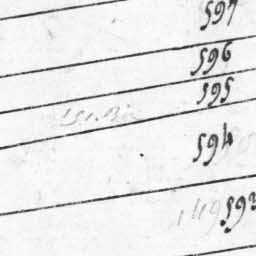 597
596
595
594
593